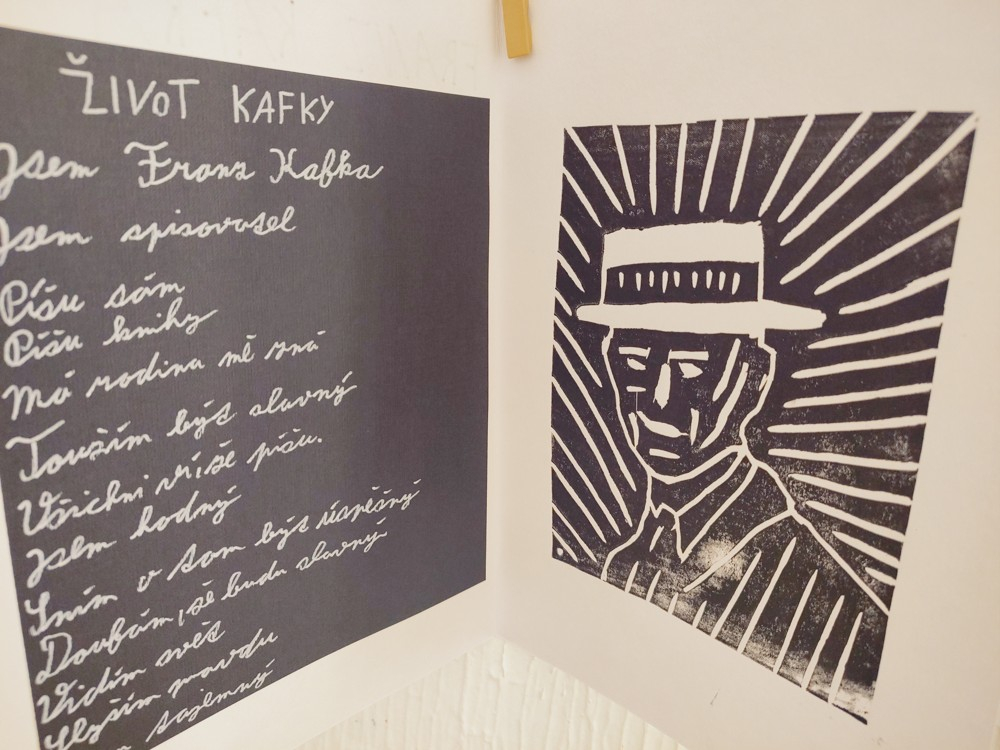 ŽIVOT KAFKY
Jsem Franz Kafka
Jsem spisovatel
Píšu sám
Píšu knihy
Má rodina mě zná
Toužím být slavný
Všichni ví, že píšu.
Jsem hodný
Sním o tom být úspěšný
Doufám, že budu slavný
Vidím svět
Slyším pravdu
tajemný